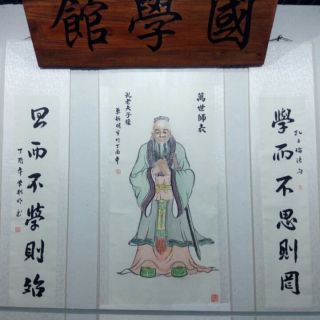 國學館
學而不思則罔
萬世師表
孔老夫子像
思而不學則殆
丁酉年